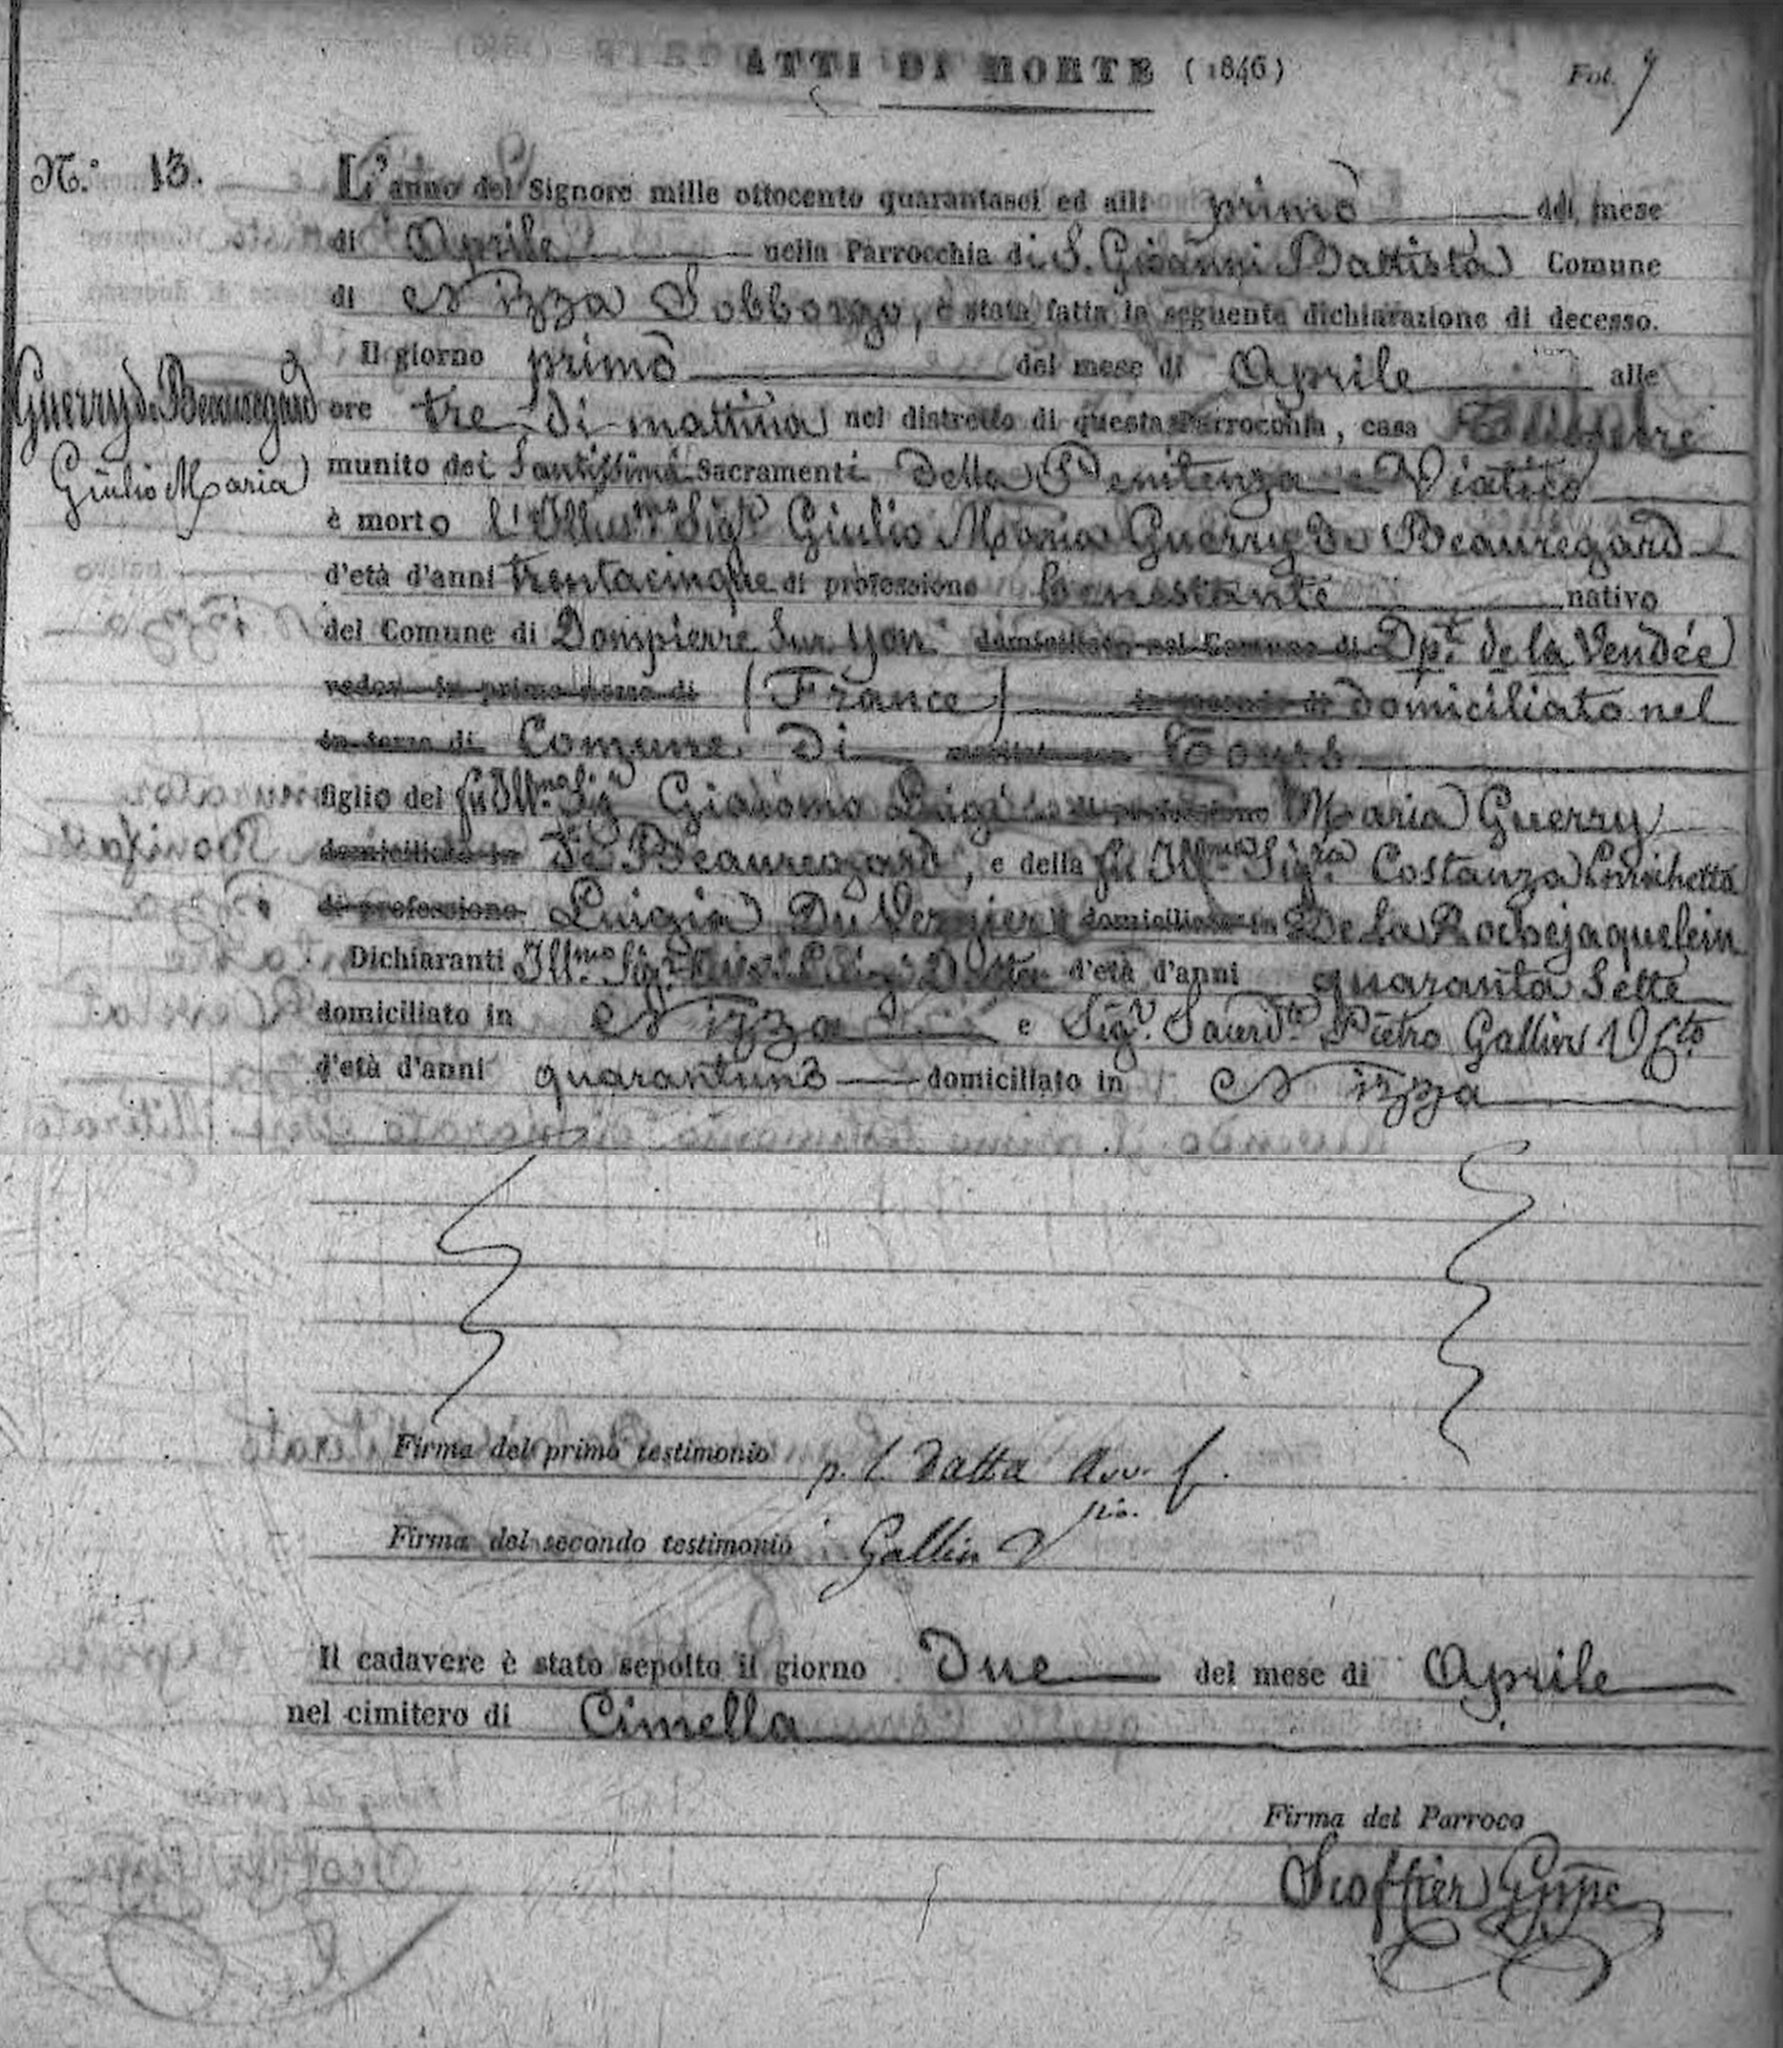 ATTI DI MORTE (1846)
Fol. 7
N.° 13.
L'anno del Signore mille ottocento quarantasei ed alli primo del mese
di Aprile nella Parrocchia di S. Gioanni Battista Comune
di Nizza Sobborgo, è stata fatta la seguente dichiarazione di decesso.
Guerry de Beauregard
Giulio Maria
Il giorno primo del mese di Aprile alle
ore tre di mattina nel distretto di questa Parrocchia, casa
munito dei Santissimi Sacramenti della Penitenza e Viatico
è morto l'Illus.mo Sig.r Giulio Maria Guerry de Beauregard
d'età d'anni trentacinque di professione benestante nativo
del Comune di Dompierre Sur Yon domiciliato nel Comune di Dp.t de la Vendée
vedov in prime nozze di (France) in seconde di domiciliato nel
in terze di Comune di maritato con Tours
figlio del fu Ill.mo Sig.r Giacomo Luigi di professione Maria Guerry
domiciliato in de Beauregard, e della fu Ill.ma Sig.ra Costanza Enrichetta
di professione Luigia Du Vergier domiciliata in De la Rochejaquelein
Dichiaranti Ill.mo Sig.r Datta d'età d'anni quaranta Sette
domiciliato in Nizza e Sig.r Sacerd.te Pietro Gallin
d'età d'anni quarantuno domiciliato in Nizza
Firma del primo testimonio p. l. Datta Avv.
Firma del secondo testimonio Gallin
Il cadavere è stato sepolto il giorno Due del mese di Aprile
nel cimitero di Cimella
Firma del Parroco
Scoffier Gppe